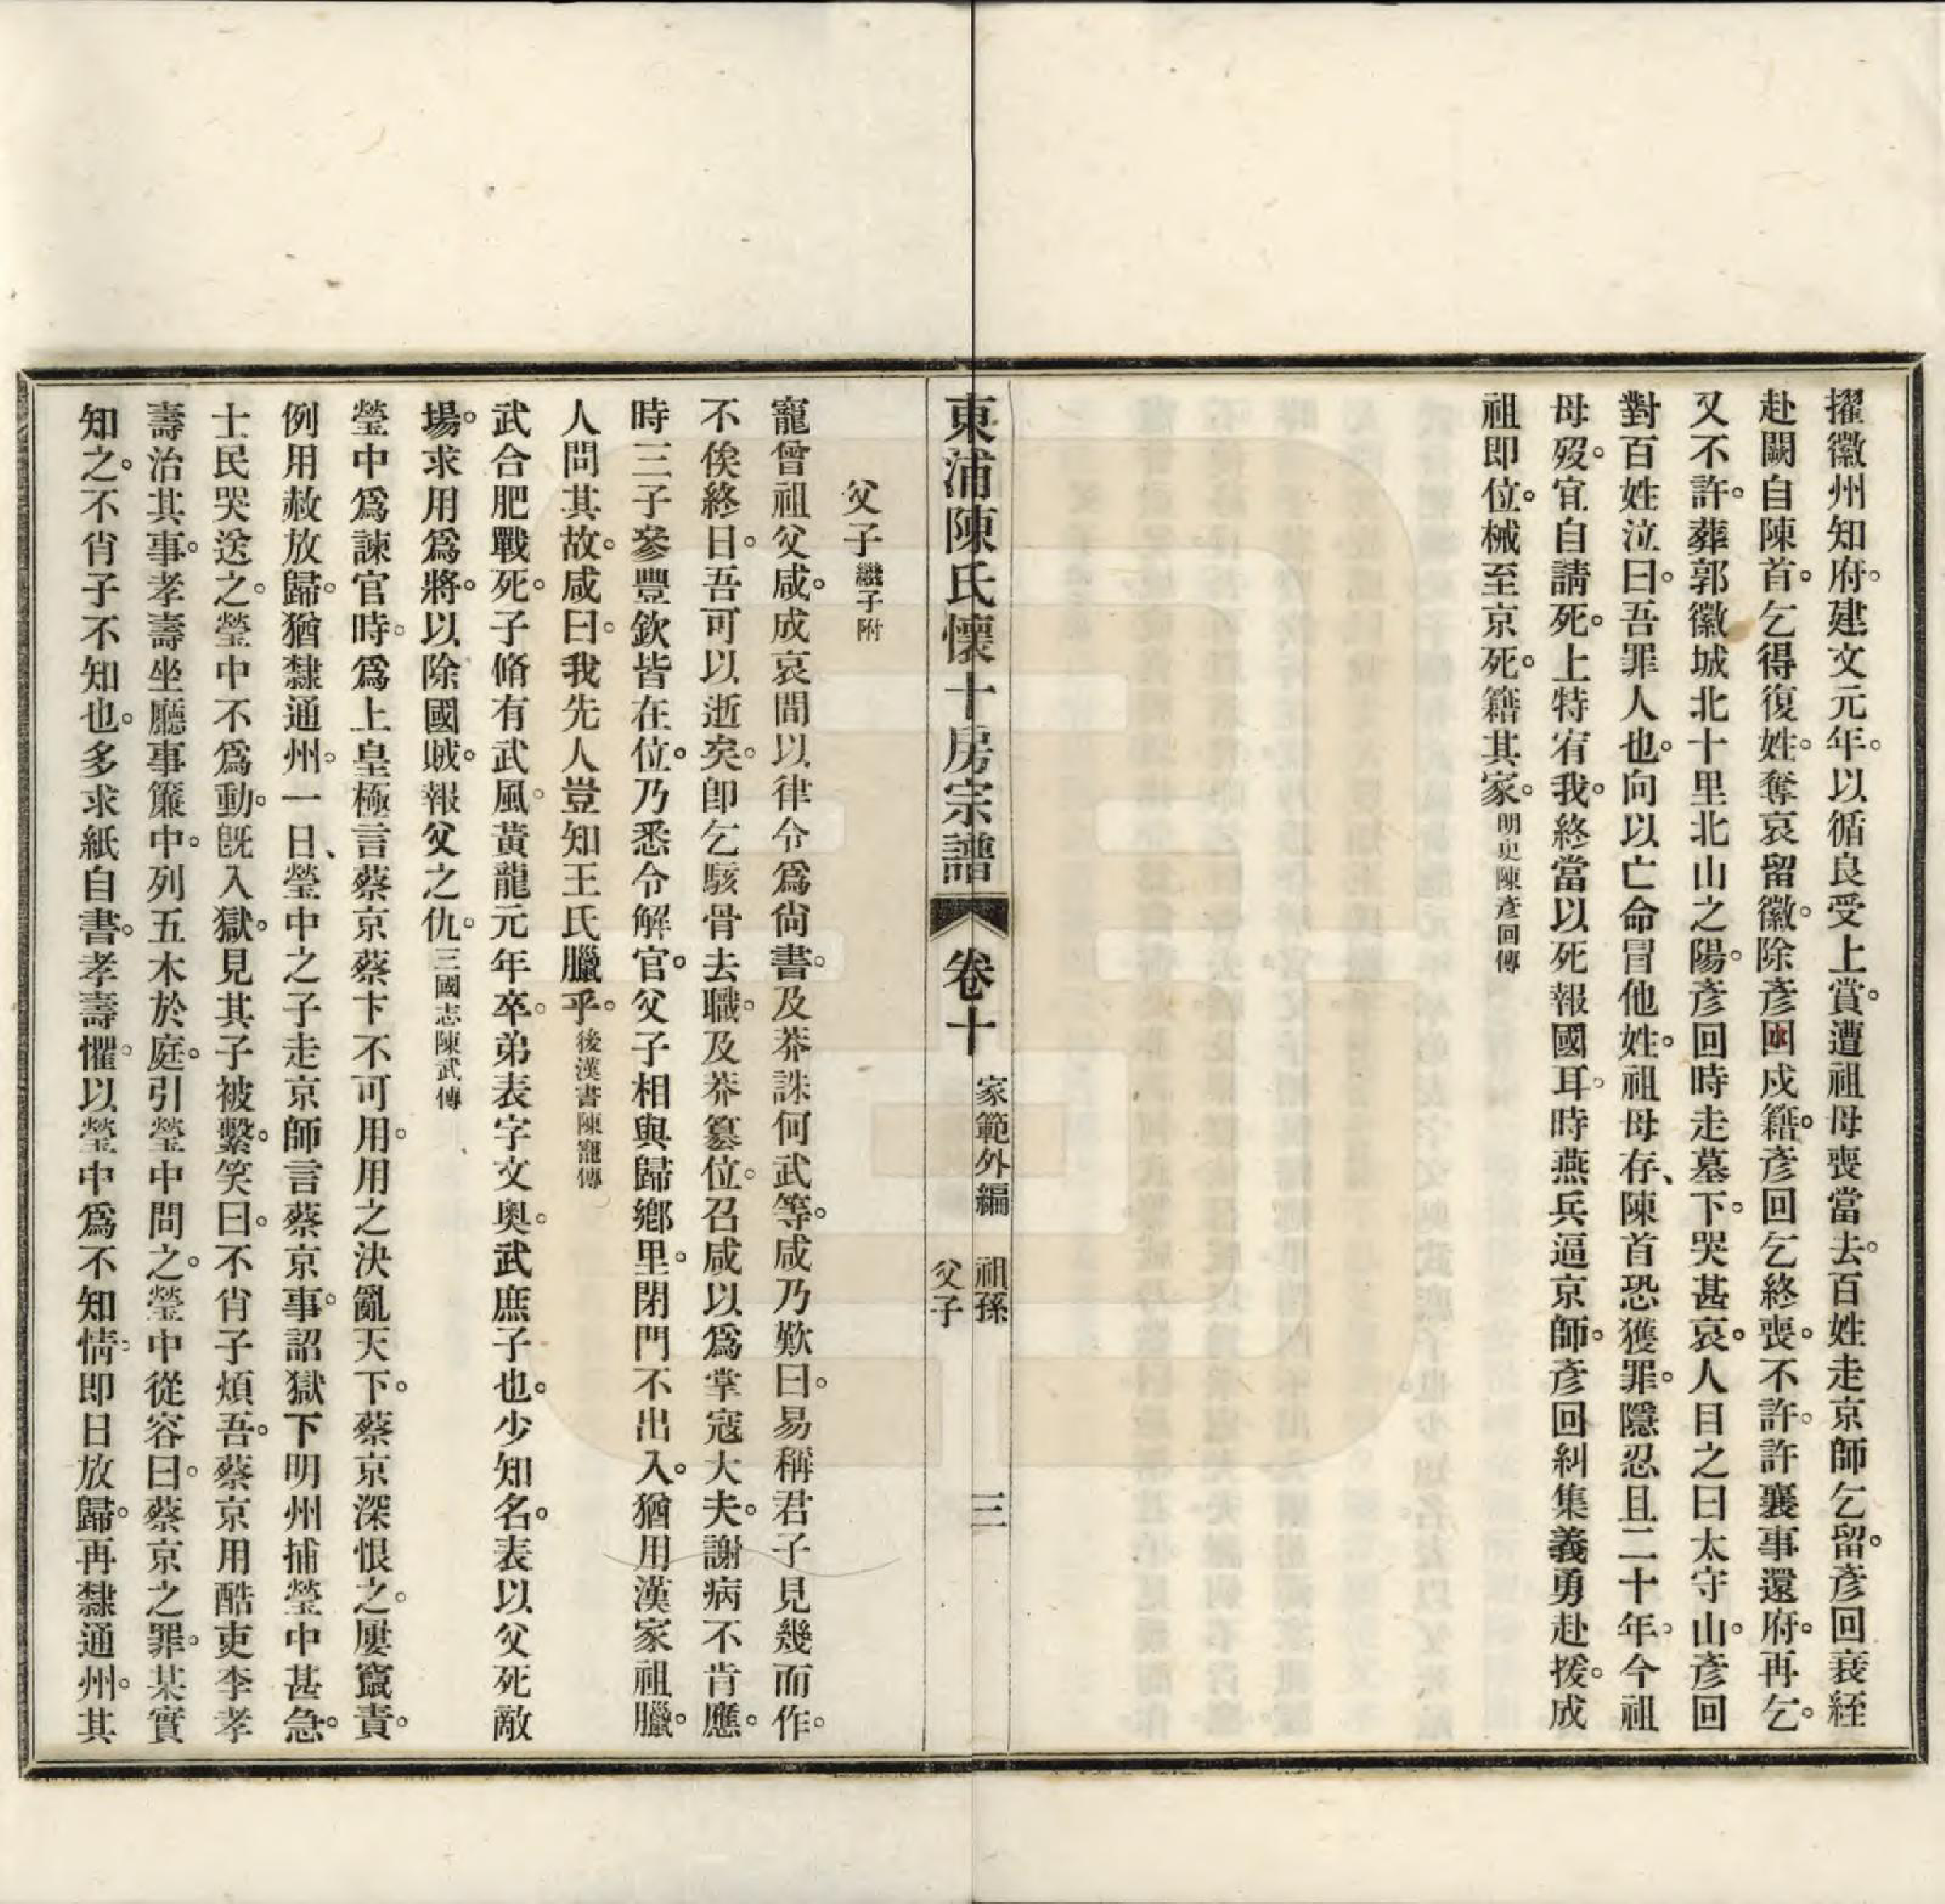 擢徽州知府。建文元年。以循良受上賞。遭祖母喪當去。百姓走京師乞留。彥回衰絰
赴闕自陳首。乞得復姓。奪哀留徽。除彥回戍籍。彥回乞終喪。不許。許襄事還府。再乞。
又不許。葬郭徽城北十里北山之陽。彥回時走墓下。哭甚哀。人目之曰太守山。彥回
對百姓泣曰。吾罪人也。向以亡命冒他姓。祖母存、陳首恐獲罪。隱忍且二十年。今祖
母歿。宜自請死。上特宥我。終當以死報國耳。時燕兵逼京師。彥回糾集義勇赴援。成
祖即位。械至京死。籍其家。明史陳彥回傳
東浦陳氏懷十房宗譜 卷十 家範外編 祖孫 父子 三
父子繼子附
寵曾祖父咸。成哀間以律令爲尙書。及莽誅何武等。咸乃歎曰。易稱君子見幾而作。
不俟終日。吾可以逝矣。卽乞骸骨去職。及莽簒位。召咸以爲掌寇大夫。謝病不肯應。
時三子參豐欽皆在位。乃悉令解官。父子相與歸鄕里。閉門不出入。猶用漢家祖臘。
人問其故。咸曰。我先人豈知王氏臘乎。後漢書陳寵傳
武合肥戰死。子脩有武風。黃龍元年卒。弟表字文奥。武庶子也。少知名。表以父死敵
場。求用爲將。以除國賊。報父之仇。三國志陳武傳
瑩中爲諫官時。爲上皇極言蔡京蔡卞不可用。用之決亂天下。蔡京深恨之。屢竄責。
例用赦放歸。猶隸通州。一日、瑩中之子走京師言蔡京事。詔獄下明州捕瑩中甚急。
士民哭送之。瑩中不爲動。旣入獄。見其子被繫。笑曰。不肖子煩吾。蔡京用酷吏李孝
壽治其事。孝壽坐廳事簾中。列五木於庭。引瑩中問之。瑩中從容曰。蔡京之罪。某實
知之。不肖子不知也。多求紙自書。孝壽懼。以瑩中爲不知情。即日放歸。再隸通州。其